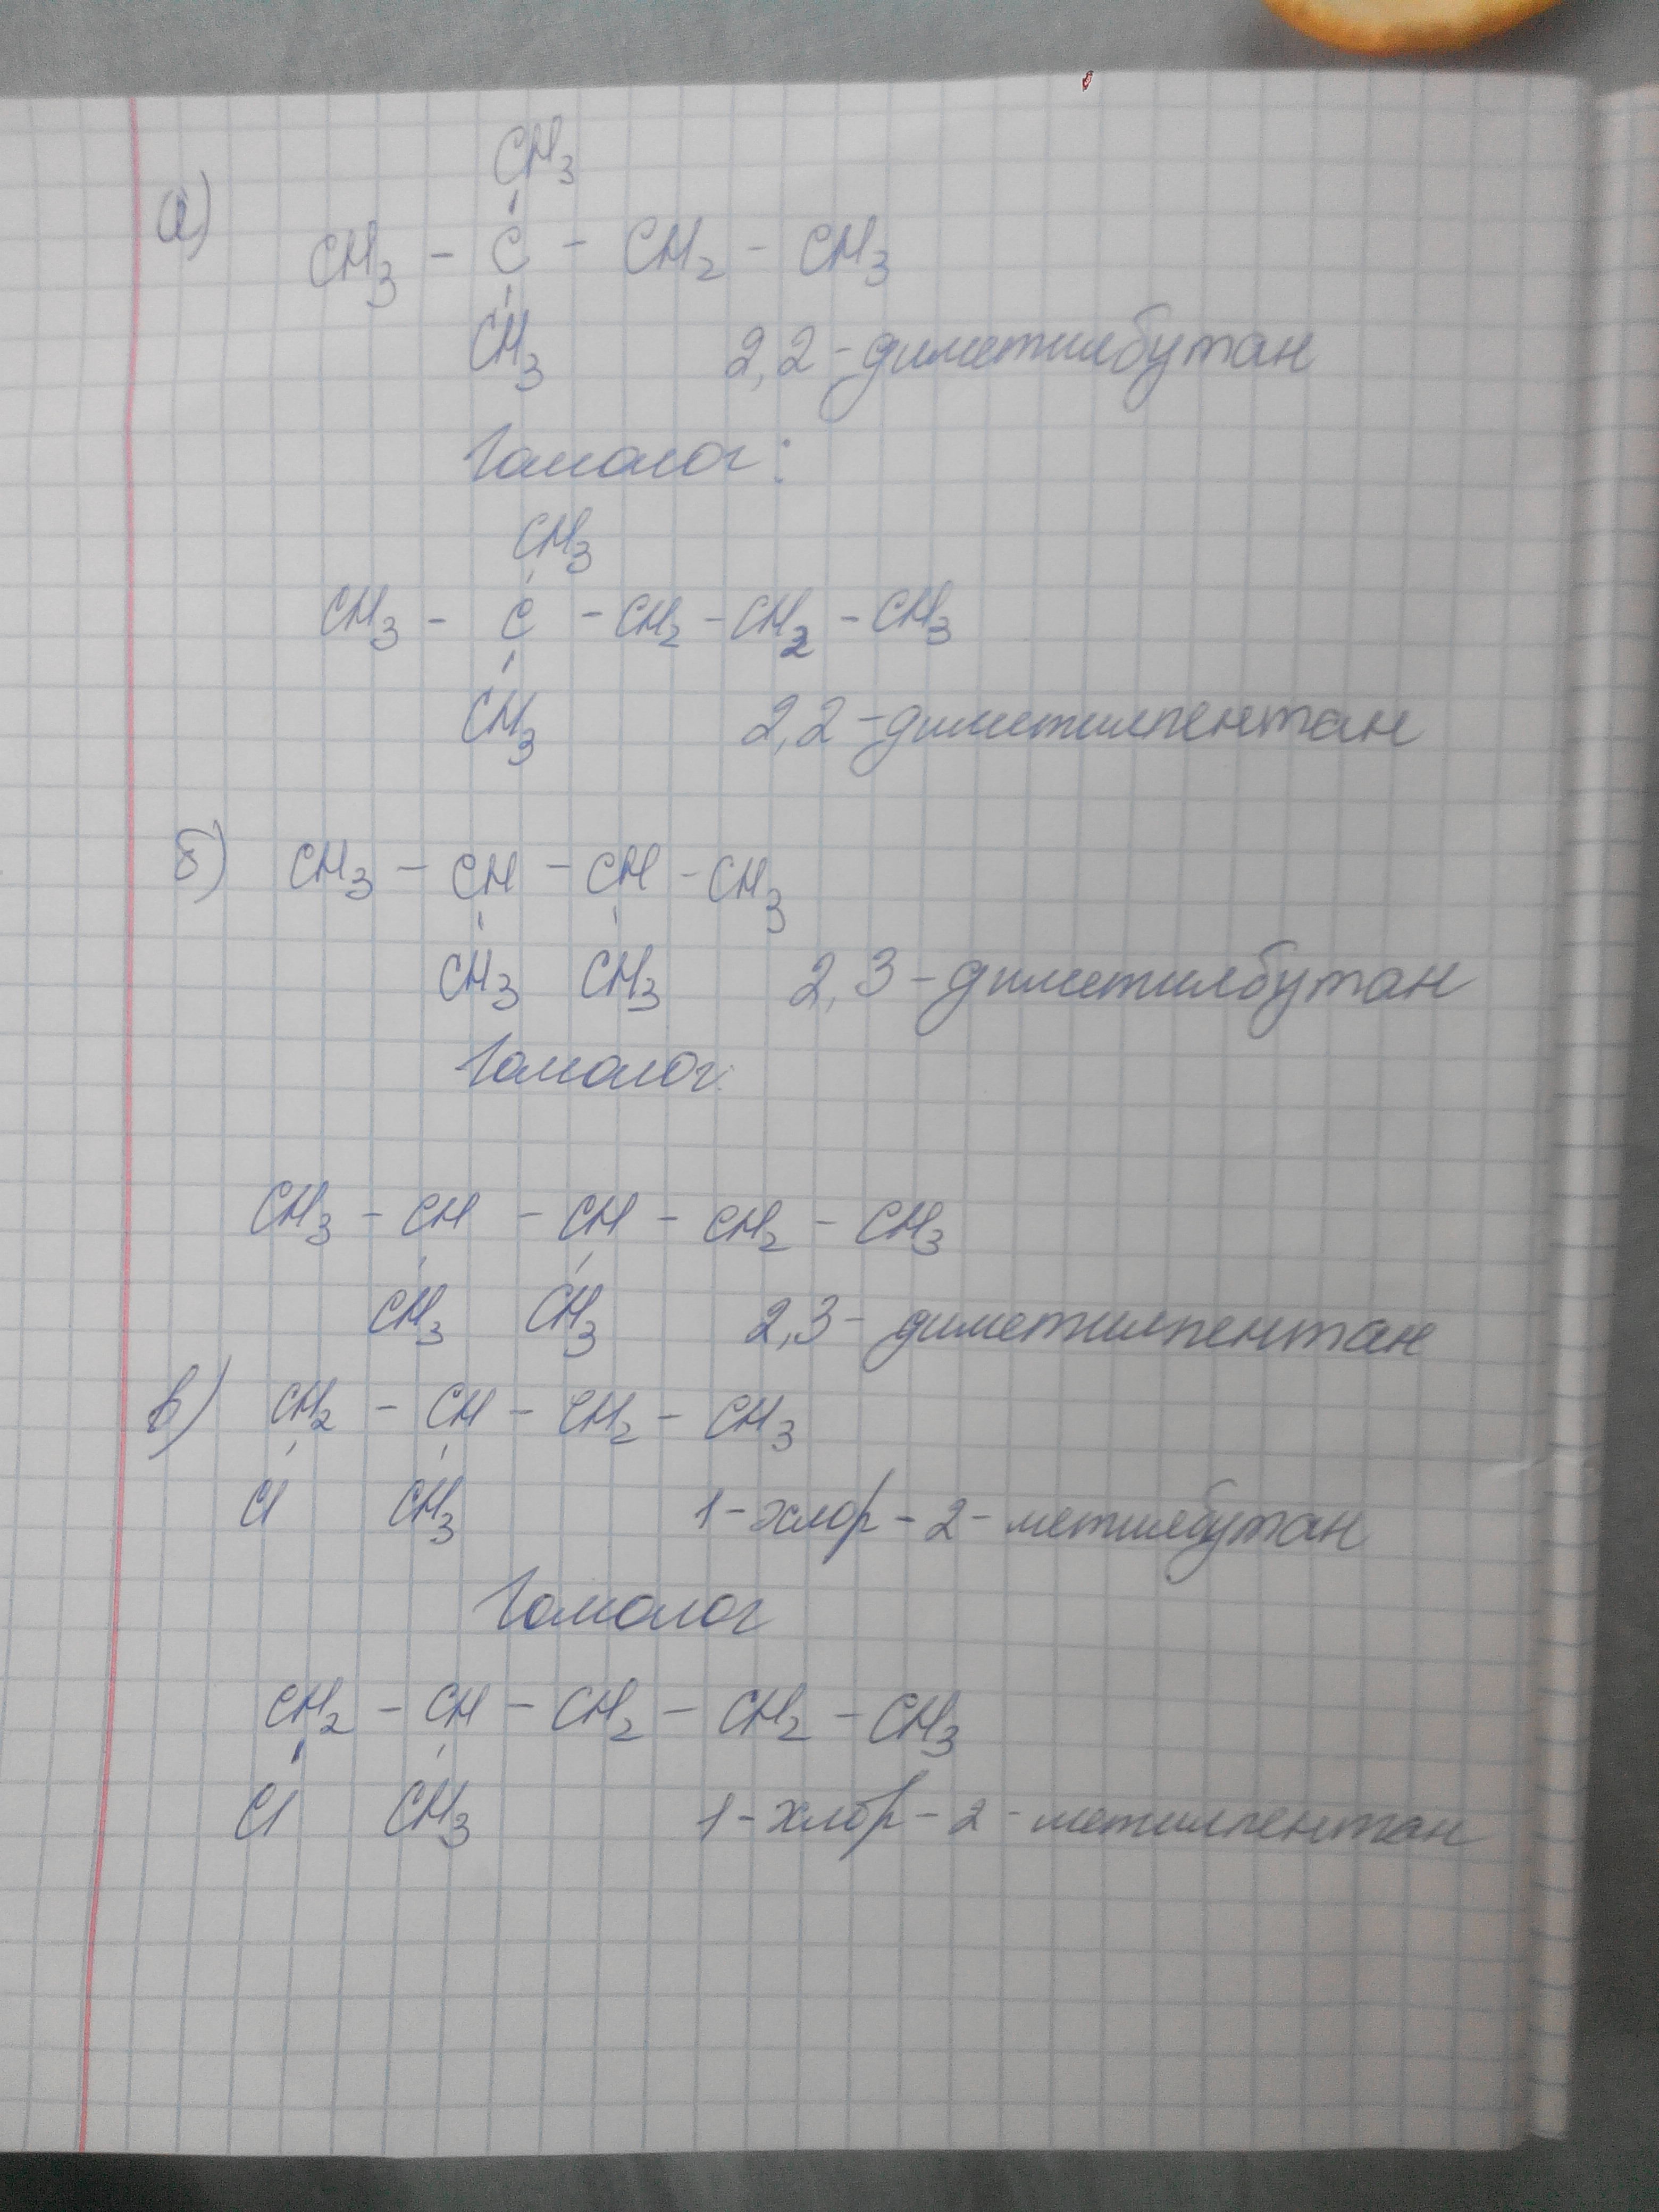 а)
CH3
CH3 - C - CH2 - CH3
CH3
2,2-диметилбутан
Гомолог:
CH3
CH3 - C - CH2 - CH2 - CH3
CH3
2,2-диметилпентан
б) CH3 - CH - CH - CH3
CH3 CH3 2,3-диметилбутан
Гомолог:
CH3 - CH - CH - CH2 - CH3
CH3 CH3 2,3-диметилпентан
в) CH2 - CH - CH2 - CH3
Cl CH3 1-хлор-2-метилбутан
Гомолог
CH2 - CH - CH2 - CH2 - CH3
Cl CH3 1-хлор-2-метилпентан